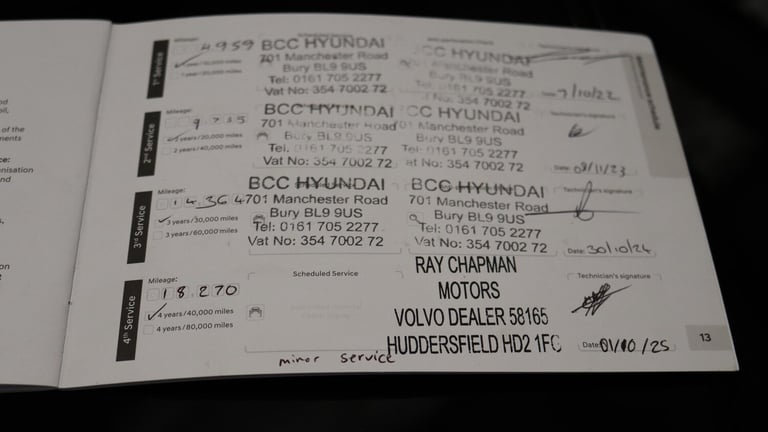 Mileage:
4959
1st Service
BCC HYUNDAI
701 Manchester Road
Bury BL9 9US
Tel: 0161 705 2277
Vat No: 354 7002 72
CC HYUNDAI
Manchester Road
Bury BL9 9US
161 705 2277
No: 354 7002 72
Technician's signature
Date: 7/10/22
Maintenance schedule
Mileage:
9735
2nd Service
2 years/20,000 miles
2 years/40,000 miles
BCC HYUNDAI
701 Manchester Road
Bury BL9 9US
Tel: 0161 705 2277
Vat No: 354 7002 72
CC HYUNDAI
701 Manchester Road
Bury BL9 9US
Tel: 0161 705 2277
at No: 354 7002 72
Technician's signature
Date: 08/11/23
Mileage:
14364
3rd Service
3 years/30,000 miles
3 years/60,000 miles
BCC HYUNDAI
701 Manchester Road
Bury BL9 9US
Tel: 0161 705 2277
Vat No: 354 7002 72
BCC HYUNDAI
701 Manchester Road
Bury BL9 9US
Tel: 0161 705 2277
Vat No: 354 7002 72
Technician's signature
Date: 30/10/24
Mileage:
18,270
4th Service
4 years/40,000 miles
4 years/80,000 miles
Scheduled Service
minor service
RAY CHAPMAN
MOTORS
VOLVO DEALER 58165
HUDDERSFIELD HD2 1FG
Technician's signature
Date: 01/10/25
13